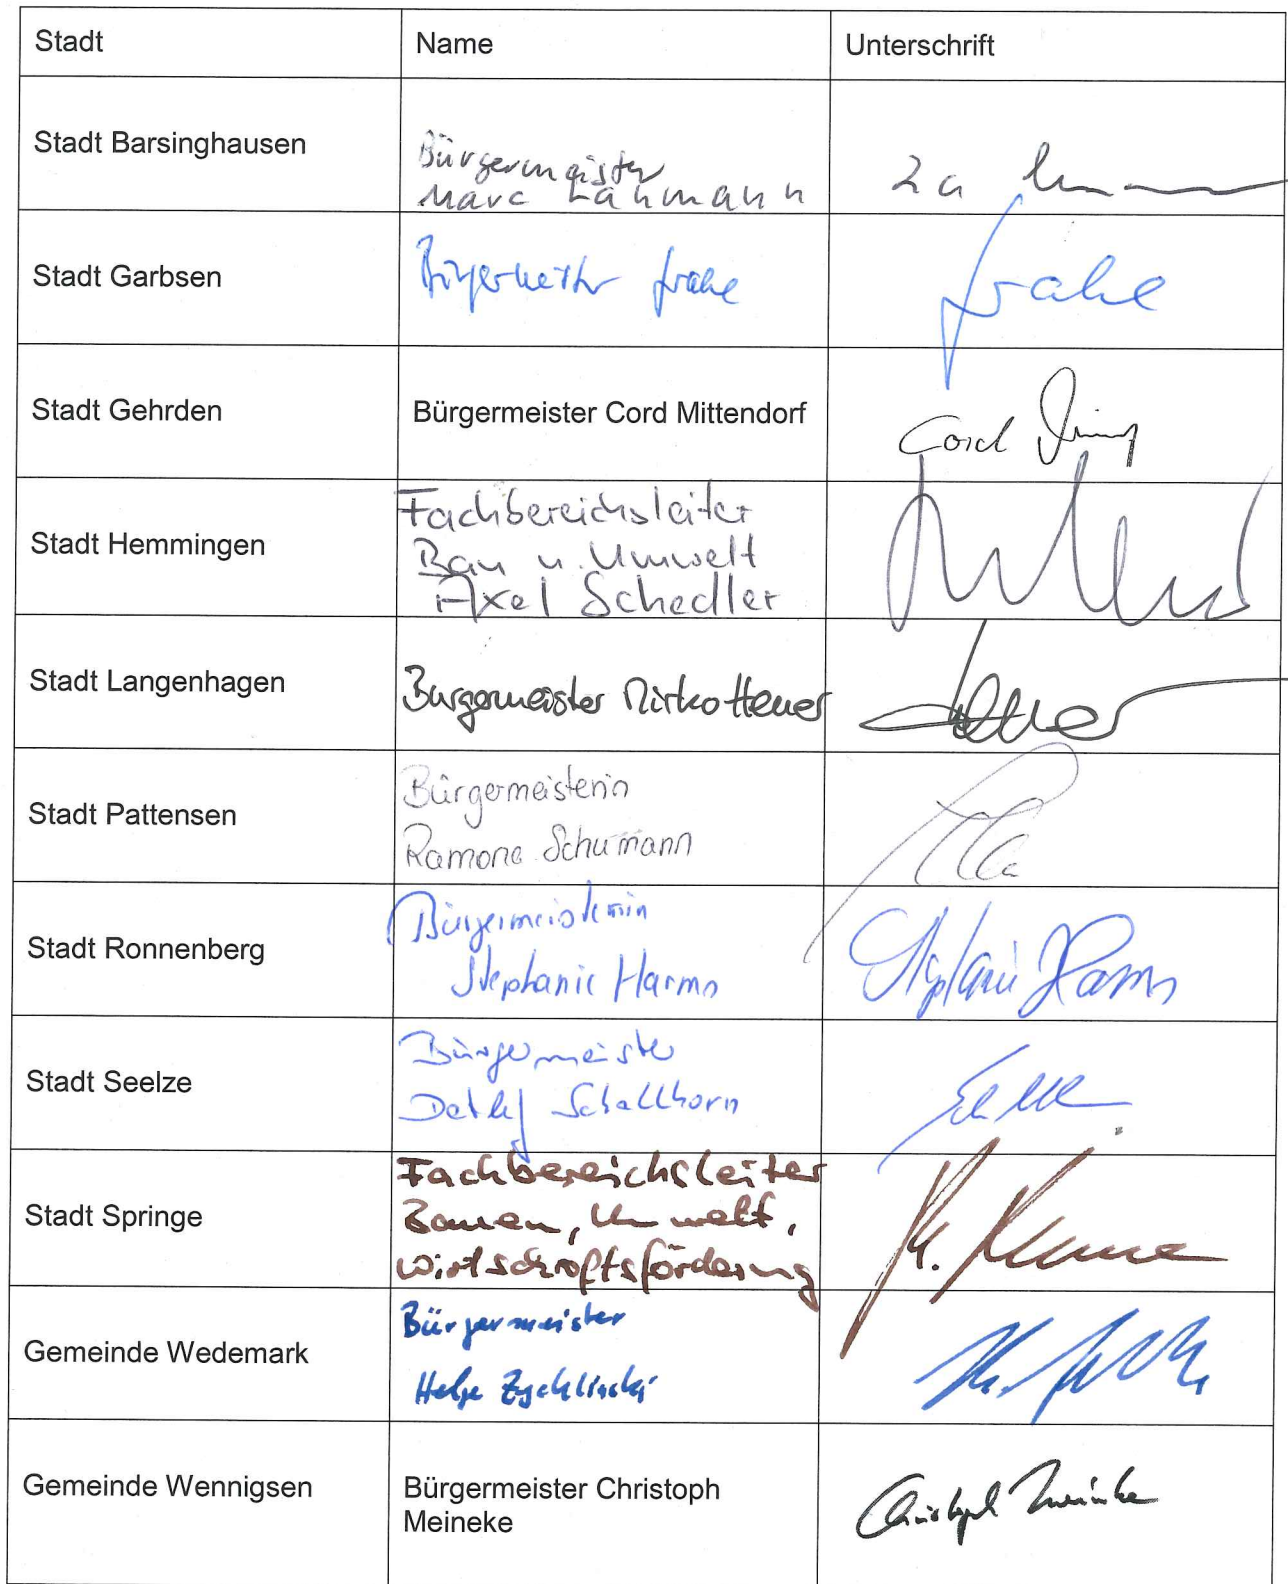 Stadt Name Unterschrift
Stadt Barsinghausen
Bürgermeister
Marc Lahmann
Stadt Garbsen
Bürgermeister Grahe
Grahe
Stadt Gehrden
Bürgermeister Cord Mittendorf
Cord
Stadt Hemmingen
Fachbereichsleiter
Bau u. Umwelt
Axel Schedler
Stadt Langenhagen
Bürgermeister Mirko Heuer
Heuer
Stadt Pattensen
Bürgermeisterin
Ramona Schumann
Stadt Ronnenberg
Bürgermeisterin
Stephanie Harms
Stephanie Harms
Stadt Seelze
Bürgermeister
Detlef Schallhorn
Stadt Springe
Fachbereichsleiter
Bauen, Umwelt,
Wirtschaftsförderung
Gemeinde Wedemark
Bürgermeister
Helge Zychlinski
Gemeinde Wennigsen
Bürgermeister Christoph
Meineke
Christoph Meineke